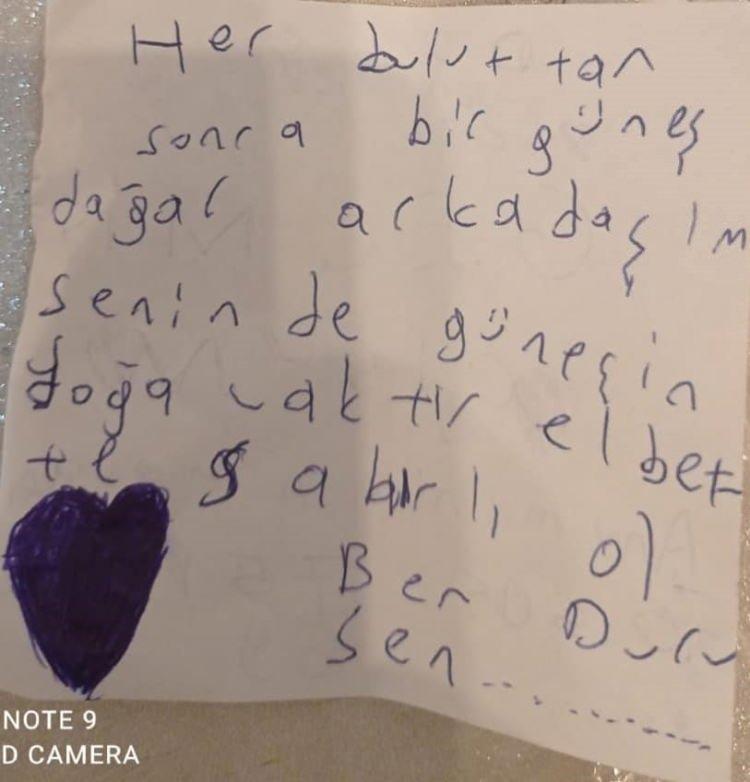 Her bulut tan
sonra bir güneş
dağar arkadaşım
senin de güneşin
doğacaktır elbet
te sabırlı ol
Ben Duru
Sen..............
NOTE 9
D CAMERA